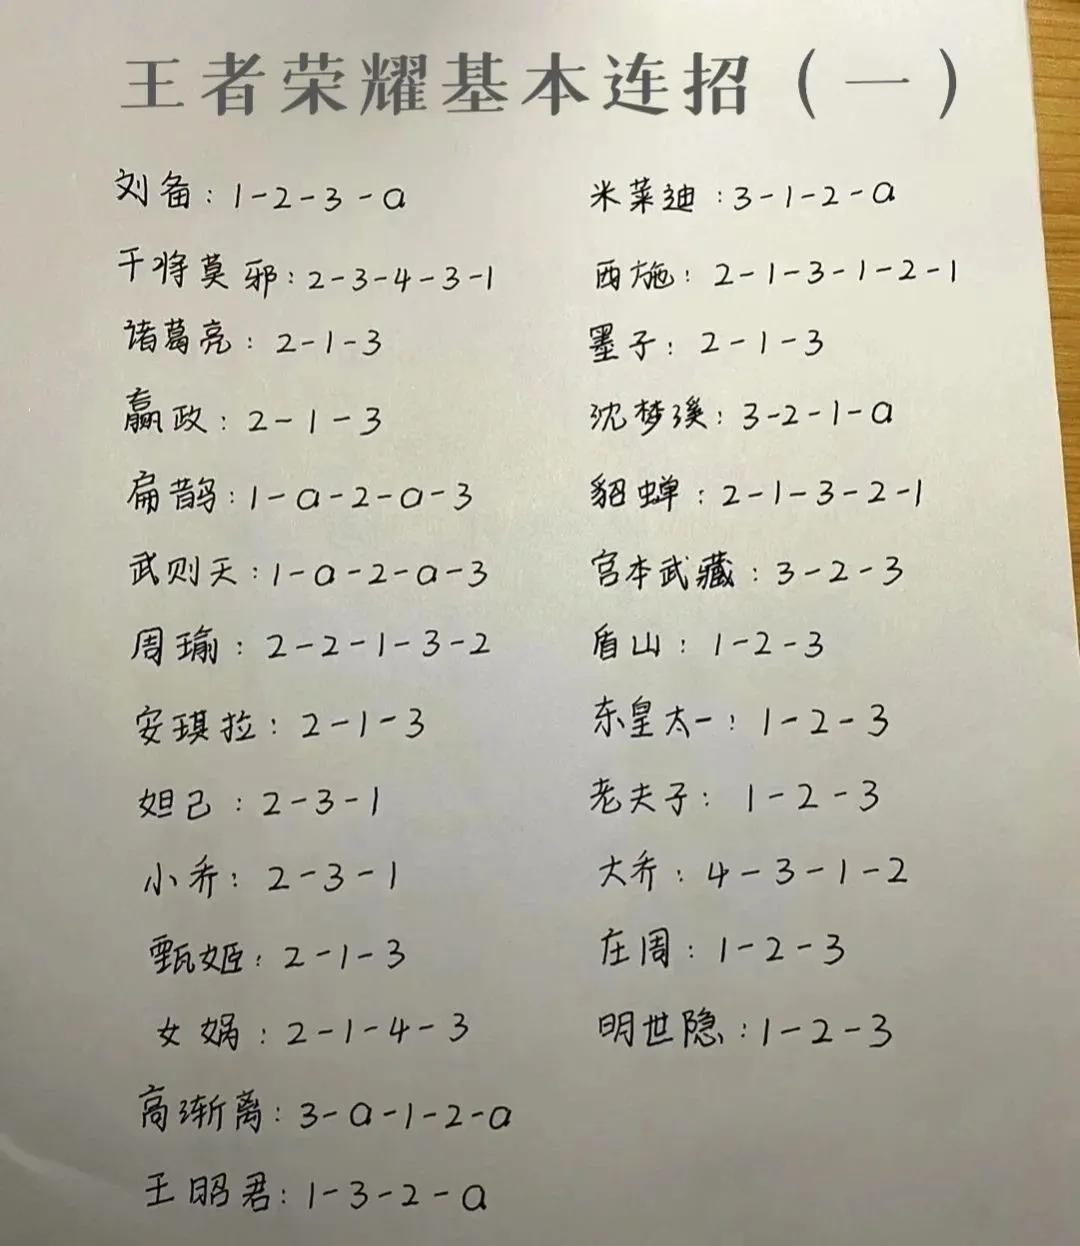 王者荣耀基本连招（一）
刘备：1-2-3-a
干将莫邪：2-3-4-3-1
诸葛亮：2-1-3
嬴政：2-1-3
扁鹊：1-a-2-a-3
武则天：1-a-2-a-3
周瑜：2-2-1-3-2
安琪拉：2-1-3
妲己：2-3-1
小乔：2-3-1
甄姬：2-1-3
女娲：2-1-4-3
高渐离：3-a-1-2-a
王昭君：1-3-2-a
米莱迪：3-1-2-a
西施：2-1-3-1-2-1
墨子：2-1-3
沈梦溪：3-2-1-a
貂蝉：2-1-3-2-1
宫本武藏：3-2-3
盾山：1-2-3
东皇太一：1-2-3
老夫子：1-2-3
大乔：4-3-1-2
庄周：1-2-3
明世隐：1-2-3